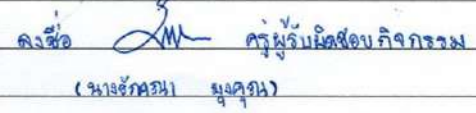 ลงชื่อ ครูผู้รับผิดชอบกิจกรรม
(นาง มุงคุณ)